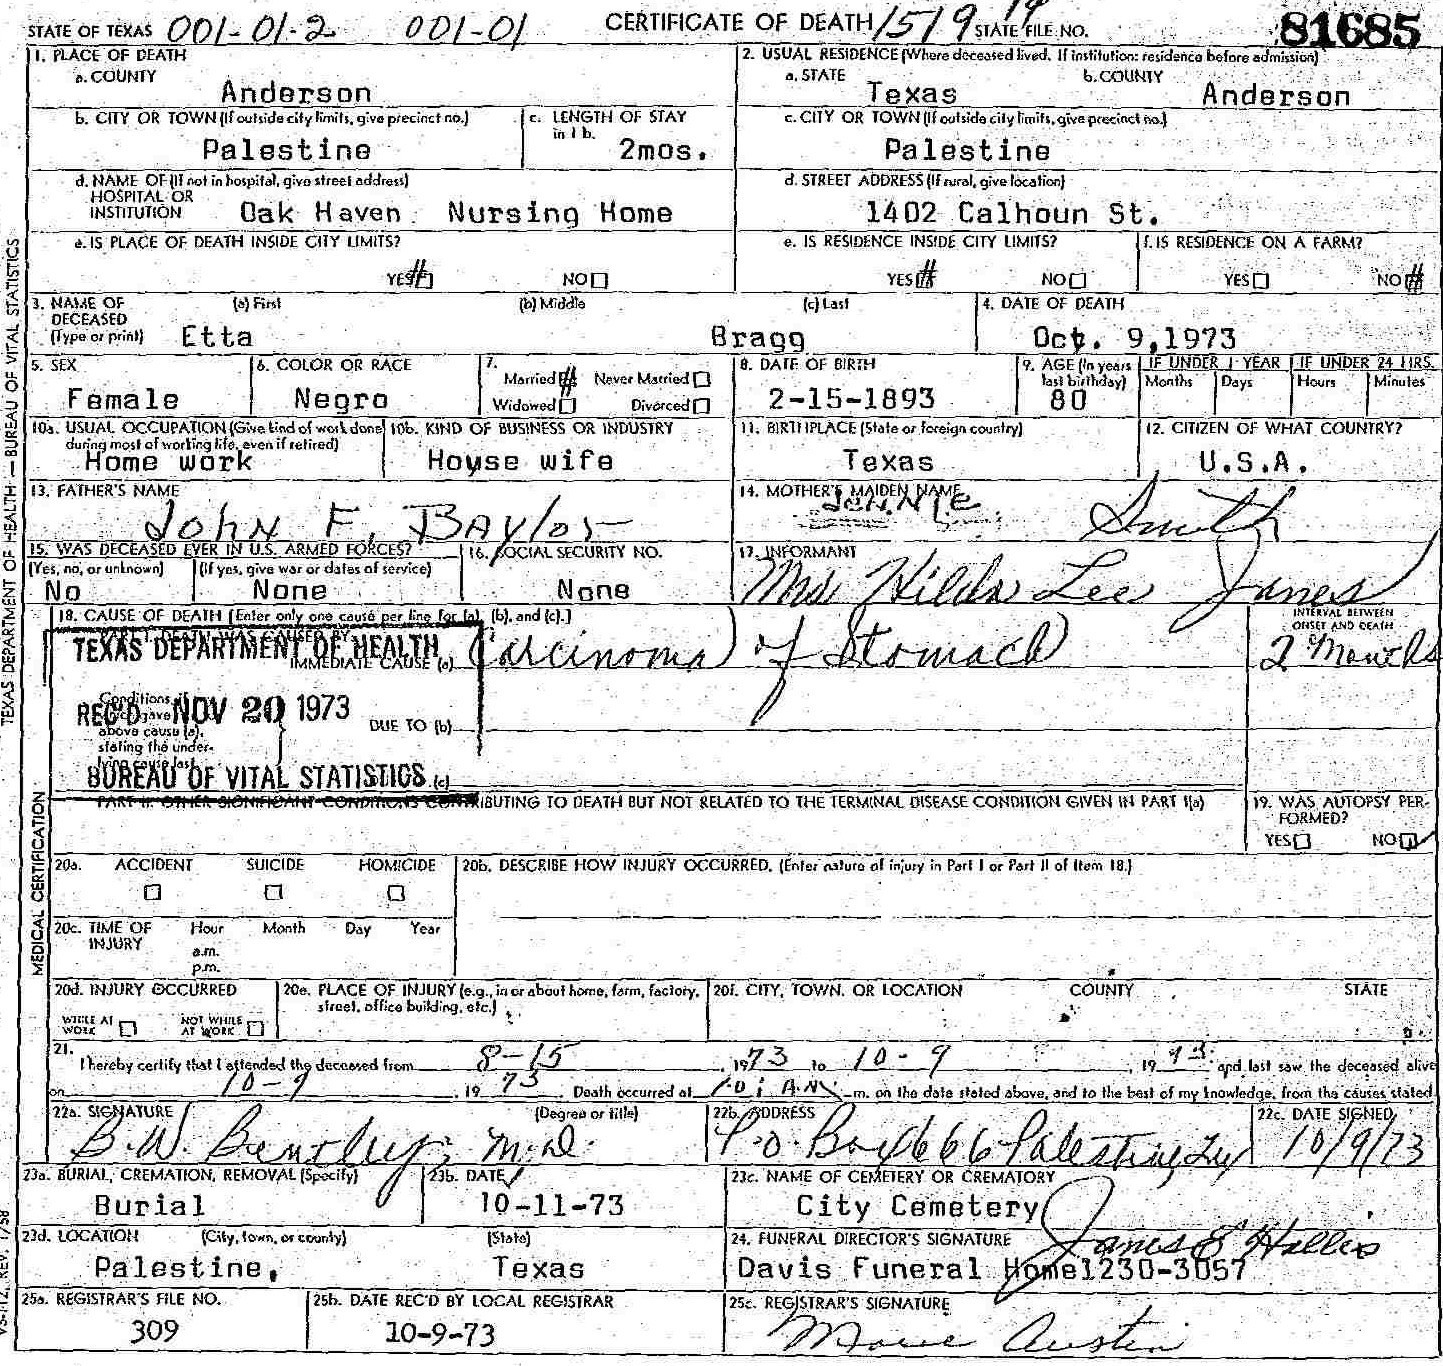 STATE OF TEXAS 001-01-2 001-01 CERTIFICATE OF DEATH 1519 STATE FILE NO. 81685
1. PLACE OF DEATH
a. COUNTY
Anderson
2. USUAL RESIDENCE (Where deceased lived. If institution: residence before admission)
a. STATE b. COUNTY
Texas Anderson
b. CITY OR TOWN (If outside city limits, give precinct no.) c. LENGTH OF STAY in 1 b.
Palestine 2mos.
c. CITY OR TOWN (If outside city limits, give precinct no.)
Palestine
d. NAME OF (If not in hospital, give street address)
HOSPITAL OR
INSTITUTION Oak Haven Nursing Home
d. STREET ADDRESS (If rural, give location)
1402 Calhoun St.
e. IS PLACE OF DEATH INSIDE CITY LIMITS?
YES NO
e. IS RESIDENCE INSIDE CITY LIMITS? f. IS RESIDENCE ON A FARM?
YES NO YES NO
3. NAME OF DECEASED (Type or print) (a) First (b) Middle (c) Last
Etta Bragg
4. DATE OF DEATH
Oct. 9,1973
5. SEX
Female
6. COLOR OR RACE
Negro
7. Married Never Married
Widowed Divorced
8. DATE OF BIRTH
2-15-1893
9. AGE (In years last birthday)
80
IF UNDER 1 YEAR IF UNDER 24 HRS.
Months Days Hours Minutes
10a. USUAL OCCUPATION (Give kind of work done during most of working life, even if retired)
Home work
10b. KIND OF BUSINESS OR INDUSTRY
House wife
11. BIRTHPLACE (State or foreign country)
Texas
12. CITIZEN OF WHAT COUNTRY?
U.S.A.
13. FATHER'S NAME
John F. Baylor
14. MOTHER'S MAIDEN NAME
Jennie Smith
15. WAS DECEASED EVER IN U.S. ARMED FORCES?
(Yes, no, or unknown) (If yes, give war or dates of service)
No None
16. SOCIAL SECURITY NO.
None
17. INFORMANT
Mrs Hilda Lee James
18. CAUSE OF DEATH [Enter only one cause per line for (a), (b), and (c).]
PART I. DEATH WAS CAUSED BY
INTERVAL BETWEEN ONSET AND DEATH
IMMEDIATE CAUSE (a) Carcinoma of Stomach 2 Months
TEXAS DEPARTMENT OF HEALTH
REC'D NOV 20 1973
BUREAU OF VITAL STATISTICS
Conditions, if
above cause (a),
stating the under-
lying cause last
DUE TO (b)
(c)
PART II. OTHER SIGNIFICANT CONDITIONS CONTRIBUTING TO DEATH BUT NOT RELATED TO THE TERMINAL DISEASE CONDITION GIVEN IN PART I(a)
19. WAS AUTOPSY PERFORMED?
YES NO
20a. ACCIDENT SUICIDE HOMICIDE
20b. DESCRIBE HOW INJURY OCCURRED. (Enter nature of injury in Part I or Part II of Item 18.)
20c. TIME OF INJURY Hour Month Day Year
a.m.
p.m.
20d. INJURY OCCURRED
WHILE AT WORK NOT WHILE AT WORK
20e. PLACE OF INJURY (e.g., in or about home, farm, factory, street, office building, etc.)
20f. CITY, TOWN, OR LOCATION COUNTY STATE
21. I hereby certify that I attended the deceased from 8-15, 1973 to 10-9, 1973 and last saw the deceased alive
on 10-9, 1973 Death occurred at m. on the date stated above, and to the best of my knowledge, from the causes stated
22a. SIGNATURE (Degree or title)
B.W. Bentley, M.D.
22b. ADDRESS
P.O. Box 666 Palestine, Tex
22c. DATE SIGNED
10/9/73
23a. BURIAL, CREMATION, REMOVAL (Specify)
Burial
23b. DATE
10-11-73
23c. NAME OF CEMETERY OR CREMATORY
City Cemetery
23d. LOCATION (City, town, or county) (State)
Palestine, Texas
24. FUNERAL DIRECTOR'S SIGNATURE
James E Hollis
Davis Funeral Home1230-3057
25a. REGISTRAR'S FILE NO.
309
25b. DATE REC'D BY LOCAL REGISTRAR
10-9-73
25c. REGISTRAR'S SIGNATURE
Austin
TEXAS DEPARTMENT OF HEALTH — BUREAU OF VITAL STATISTICS
MEDICAL CERTIFICATION
VS-112, REV. 1/58